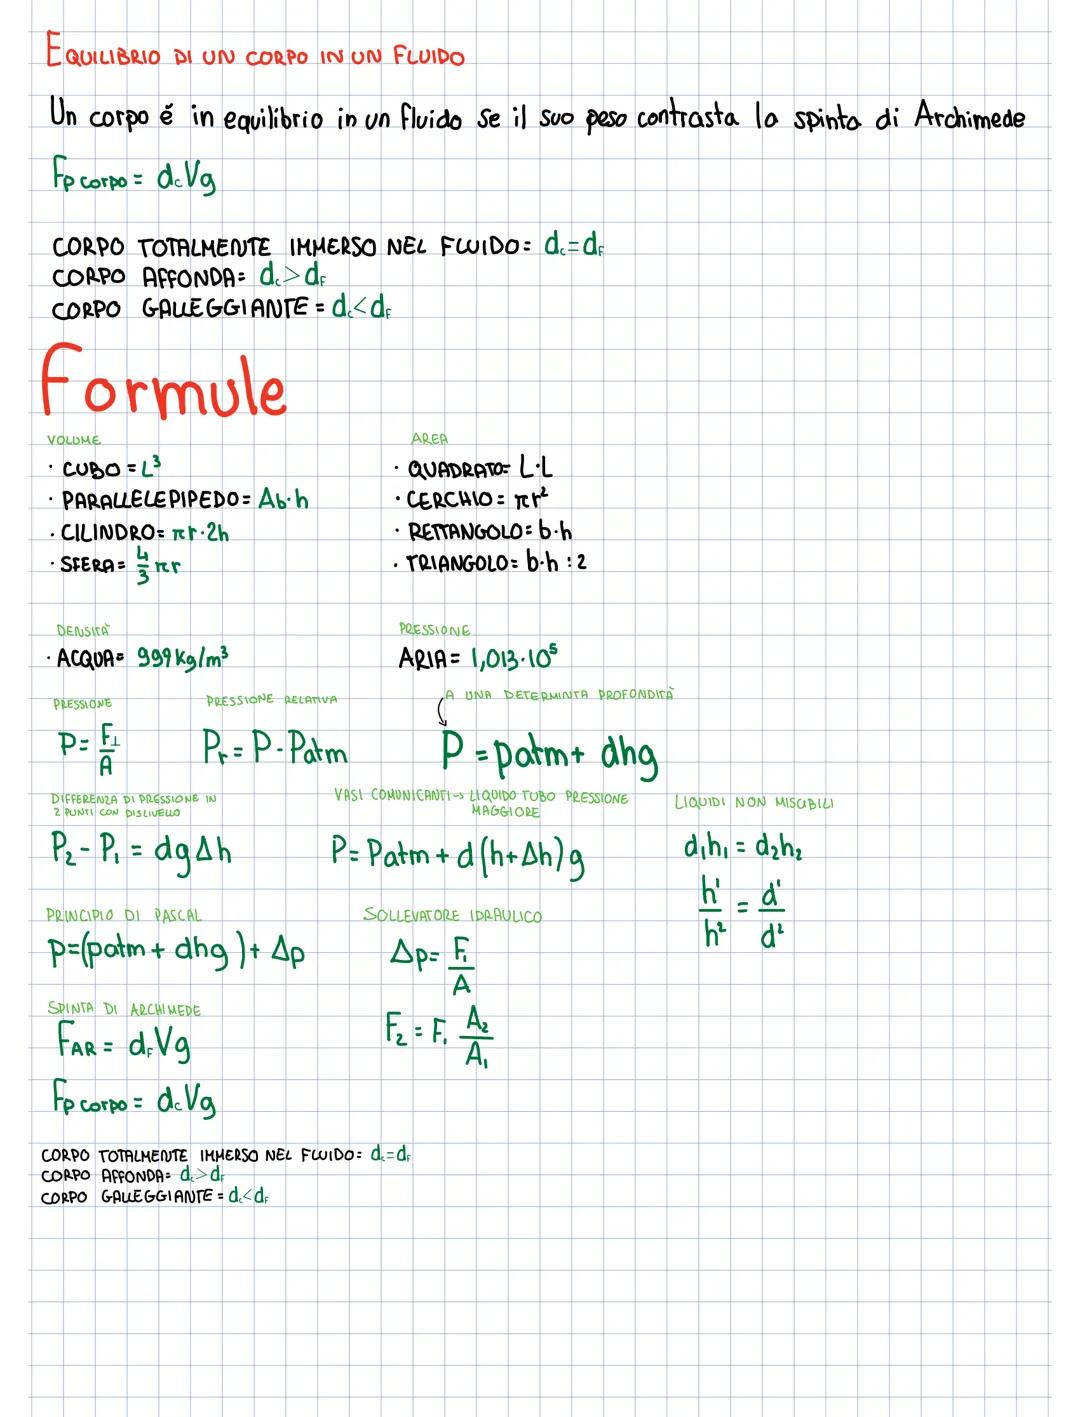 EQUILIBRIO DI UN CORPO IN UN FLUIDO
Un corpo é in equilibrio in un fluido se il suo peso contrasta la spinta di Archimede
Fp corpo = dcVg
CORPO TOTALMENTE IMMERSO NEL FLUIDO: dc=dF
CORPO AFFONDA: dc>dF
CORPO GALLEGGIANTE = dc<dF
Formule
VOLUME
· CUBO = L³
· PARALLELEPIPEDO = Ab·h
· CILINDRO= πr·2h
· SFERA = 4/3 πr
AREA
· QUADRATO= L·L
· CERCHIO = πr²
· RETTANGOLO = b·h
· TRIANGOLO = b·h : 2
DENSITÀ
· ACQUA= 999 Kg/m³
PRESSIONE
ARIA = 1,013·10⁵
PRESSIONE
P= F⊥/A
PRESSIONE RELATIVA
Pr = P - Patm
A UNA DETERMINTA PROFONDITÀ
P = patm + dhg
DIFFERENZA DI PRESSIONE IN
2 PUNTI CON DISLIVELLO
P₂ - P₁ = dgΔh
VASI COMUNICANTI -> LIQUIDO TUBO PRESSIONE
MAGGIORE
P= Patm + d(h+Δh)g
LIQUIDI NON MISCIBILI
d₁h₁ = d₂h₂
h¹/h² = d¹/d²
PRINCIPIO DI PASCAL
p=(patm + dhg)+ Δp
SOLLEVATORE IDRAULICO
Δp= F₁/A
F₂ = F₁ A₂/A₁
SPINTA DI ARCHIMEDE
FAR = dFVg
Fp corpo = dcVg
CORPO TOTALMENTE IMMERSO NEL FLUIDO: dc=dF
CORPO AFFONDA: dc>dF
CORPO GALLEGGIANTE = dc<dF